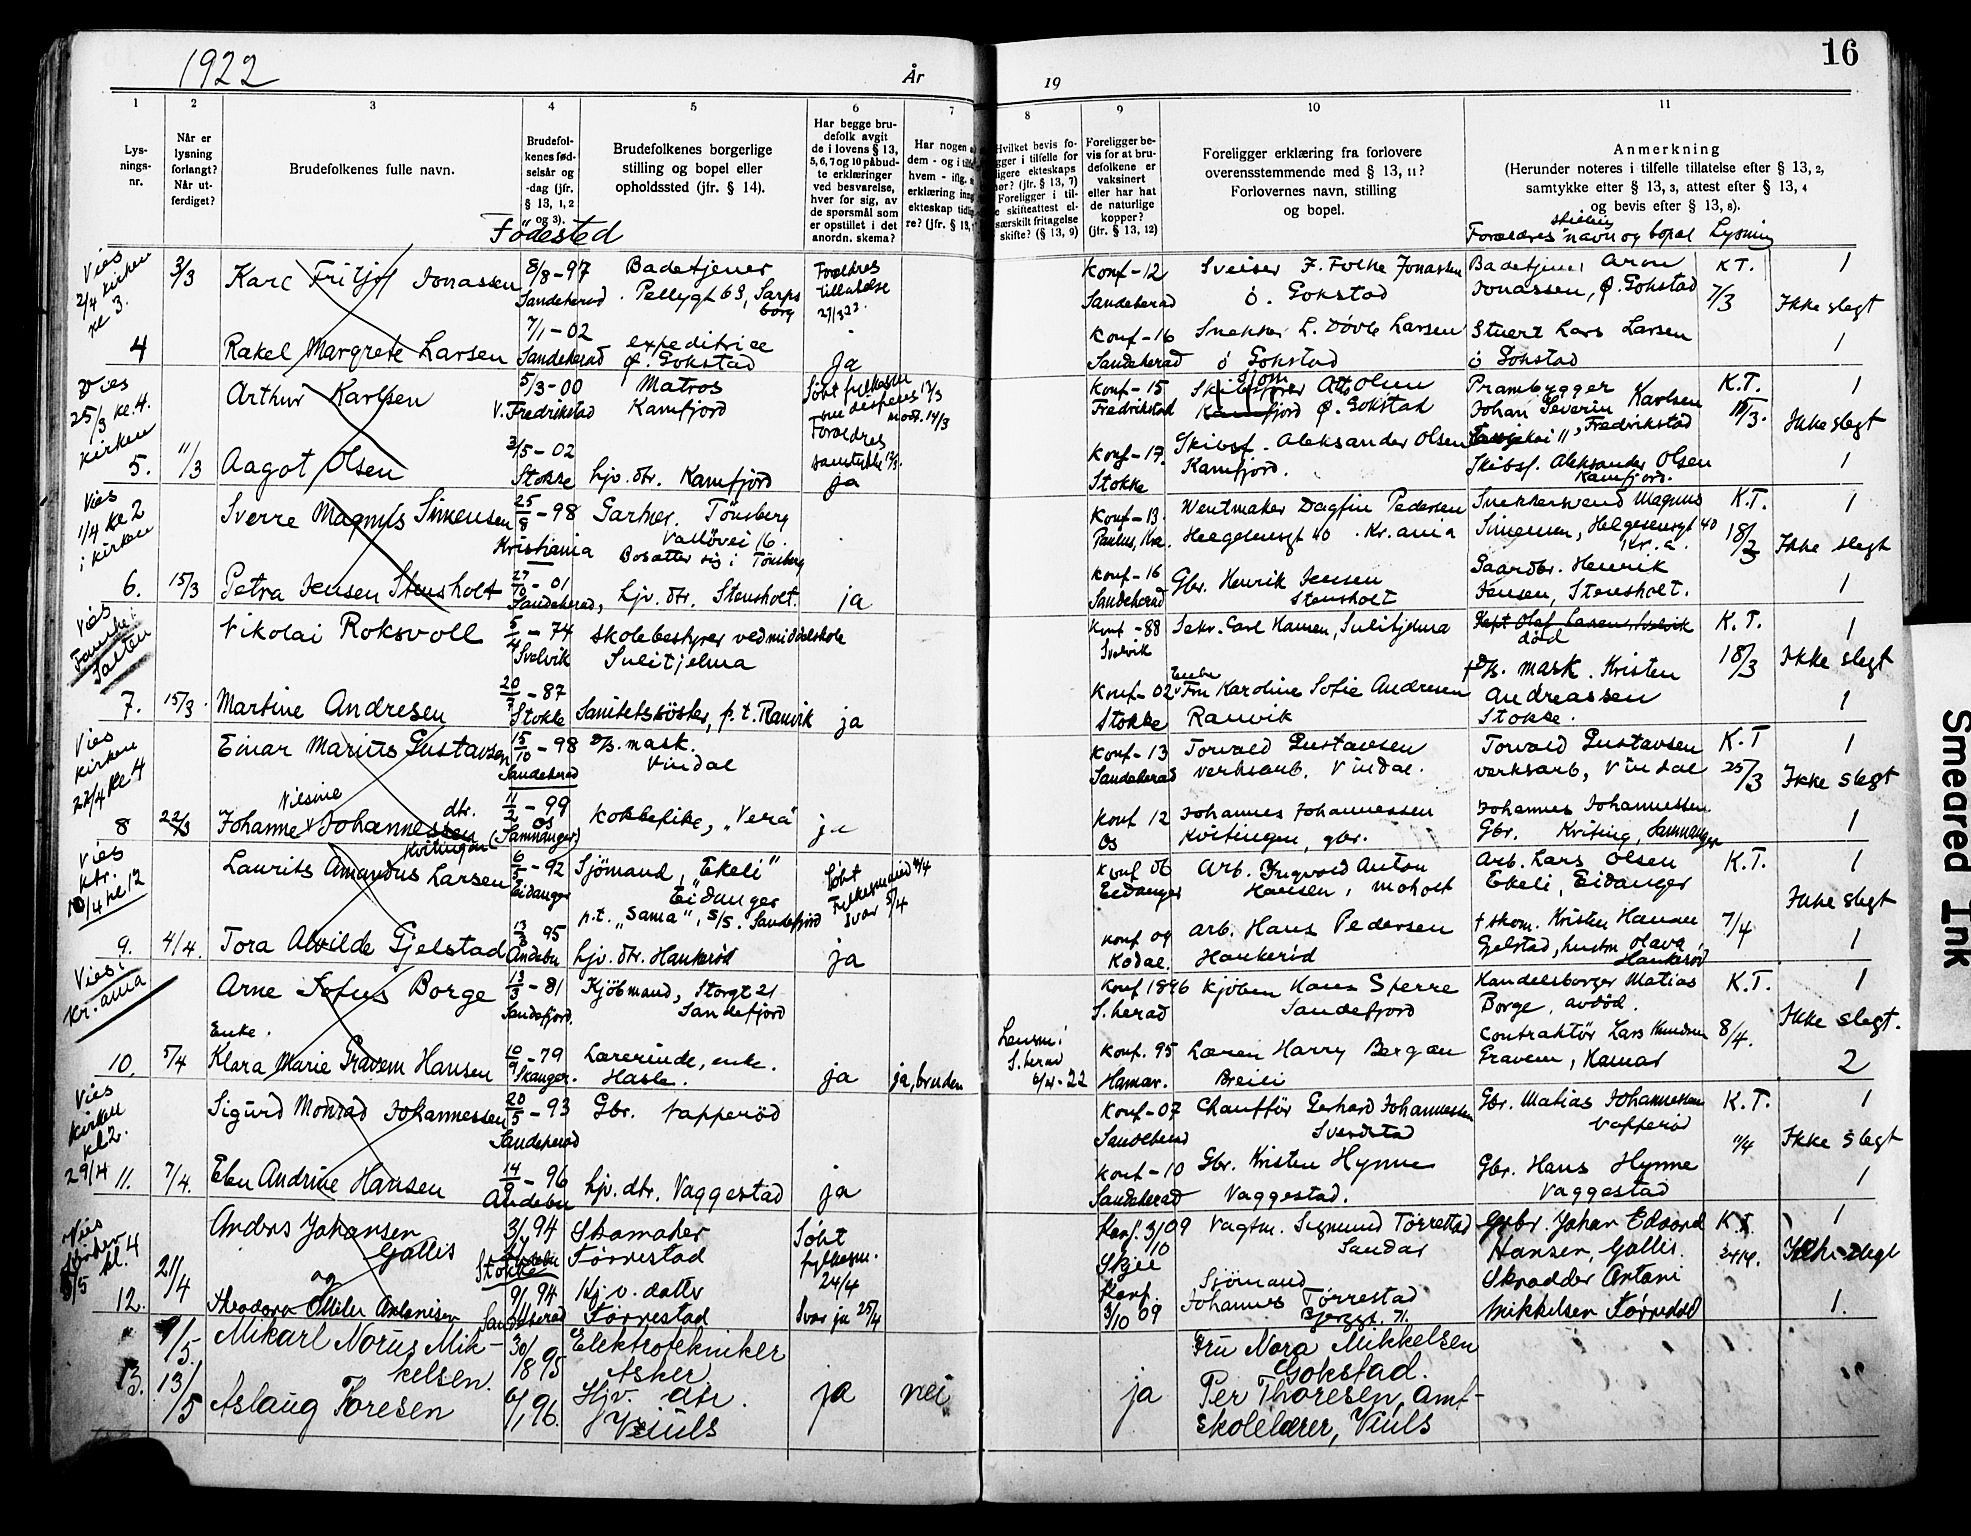 1922
År
19
16
1
2
3
4
5
6
7
8
9
10
11
Lys-
nings-
nr.
Når er
lysning
forlangt?
Når ut-
ferdiget?
Brudefolkenes fulle navn.
Brudefol-
kenes fød-
selsår og
-dag (jfr.
§ 13, 1, 2
og 3).
Fødested
Brudefolkenes borgerlige
stilling og bopel eller
opholdssted (jfr. § 14).
Har begge bru-
defolk avgit
de i lovens § 13,
5, 6, 7 og 10 påbud-
te erklæringer
ved besvarelse,
hver for sig, av
de spørsmål som
er opstillet i det
anordn. skema?
Har nogen
dem - og i
hvem - iflg.
erklæring inng
ekteskap tidlig
re? (jfr. § 13,
Hvilket bevis fo-
gger i tilfelle for
ligere ekteskaps
hør? (jfr. § 13, 7)
Foreligger i til-
e skifteattest el-
særskilt fritagelse
skifte? (§ 13, 9)
Foreligger be-
vis for at bru-
defolkene er
vaksinert
eller har hat
de naturlige
kopper?
(jfr. § 13, 12)
Foreligger erklæring fra forlovere
overensstemmende med § 13, 11?
Forlovernes navn, stilling
og bopel.
Anmerkning
(Herunder noteres i tilfelle tillatelse efter § 13, 2,
samtykke efter § 13, 3, attest efter § 13, 4
og bevis efter § 13, 8).
stilling
Forældres navn og bopel Lysning
Vies
2/4 kirken
kl 3.
3/3 Karl Fritjof Jonassen 8/8-97 Badetjener Forældres Konf-12 Sveiser F. Folke Jonassen Badetjener Arne K.T. 1
Sandeherad Pellygt 63, Sarpsborg tillatelse Sandeherad ö. Gokstad Jonassen, Ø. Gokstad 7/3 Ikke slegt
4 7/1-02 expeditrice Konf-16 Snekker L. Døvle Larsen Stuert Lars Larsen 1
Rakel Margrete Larsen Sandeherad Ø. Gokstad Ja Sandeherad ö Gokstad ö Gokstad
Vies
25/3 kl. 4.
kirken
Arthur Karlsen 5/3-00 Matros Søkt Konf-15 Otto Olsen Prambygger K.T. 1
V. Fredrikstad Kamfjord Fredrikstad Ø. Gokstad Johan Severin Karlsen Fredrikstad Ikke slegt
5. 11/3 Aagot Olsen 3/5-02 Forældres samtykke Konf-17. Skibsf. Aleksander Olsen Skibsf. Aleksander Olsen 1
Stokke hjv. dtr. Kamfjord ja Stokke Kamfjord. Kamfjord.
Vies
1/4 kl 2
i kirken
Sverre Magnus Simensen 25/8-98 Gartner. Tönsberg Konf-13. Dagfin Pedersen Snekkersvend Magnus K.T. 1
Kristiania Valløvei 16. Paulus, Kra. Helgesensgt 40. Kr.ania Simensen, Helgesensgt 40 Kr.a. 18/3 Ikke slegt
Bosætter sig i Tönsberg
6. 15/3 Petra Jensen Stensholt 27/10-01 Konf-16 Gbr. Henrik Jensen Gaardbr. Henrik 1
Sandeherad, hjv. dtr. Stensholt. ja Sandeherad Stensholt Jensen, Stensholt.
Vies i
Fauske
Salten
Nikolai Roksvoll 5/4-74 skolebestyrer ved middelskole Konf-88 Sekr. Carl Hansen, Sulitjelma død K.T. 1
Svelvik Sulitjelma Svelvik 18/3 Ikke slegt
7. 15/3. Martine Andresen 20/7-87 Konf-02 Enke Fru Karoline Sofie Andresen † D/s. mask. Kristen Andreassen 1
Stokke Sanitetssöster, p.t. Ranvik ja Stokke Ranvik Stokke.
Vies
kirken
22/4 kl 4
Einar Marius Gustavsen 15/10-98 D/s. mask. Konf-13 Torvald Gustavsen Torvald Gustavsen K.T 1
Sandeherad Vindal Sandeherad verksarb. Vindal. verksarb, Vindal 25/3 Ikke slegt
8 22/3 Johanne Nilsine Johannessen dtr. Kvitingen 11/2-99 kokkepike, "Vera" ja Konf 12 Johannes Johannessen Johannes Johannessen 1
Os (Samnanger) Os Kvitingen, gbr. Gbr. Kviting, Samnanger
Vies
ktr.
10/4 kl 12
Laurits Amandus Larsen 6/5-92 Sjömand, "Ekeli" Søkt Fylkesmand Konf 06 Arb. Ingvald Anton Arb. Lars Olsen K.T. 1
Eidanger Eidanger Svar 5/4 Eidanger Hansen, Moholt Ekeli, Eidanger Ikke slegt
p.t. "Sama", S/S. Sandefjord
9. 4/4. Tora Alvilde Gjelstad 13/3 95 Konf 09 Arb. Hans Pedersen † skom. Kristen Hansen 7/4 1
Andebu hjv. dtr. Haukerød ja Kodal. Haukerød Gjelstad, hustru Olava, Haukerød
Vies i
Kr.ania
Arne Sofus Borge 13/3-81 Kjöbmand, Storgt 21 Konf 1896 Kjöbm Hans Sperre Handelsborger Matias K.T. 1
Sandefjord. Sandefjord S. herad Sandefjord Borge, avdød. Ikke slegt.
Enke.
10. 5/4 Klara Marie Gravem Hansen 10/9-79 Lærerinde, enke. ja ja, bruden Lensm. i S. herad 6/4-22 Konf. 95 Læren Harry Bergan Contraktör Lars Knudsen 8/4.
Skanger. Hasle. Hamar. Breili Gravem, Hamar 2
Vies
kirken
kl 2.
29/4
Sigurd Monrad Johannessen 20/5-93 Gbr. Vapperöd Konf-07 Chaufför Gerhard Johannessen Gbr. Matias Johannessen K.T. 1
Sandeherad Sandeherad Sverdstad Vapperöd 11/4 Ikke slegt
11. 7/4. Elen Andrine Hansen 14/9-96 hjv. dtr. Vaggestad ja Konf-10 Gbr. Kristen Hynne Gbr. Hans Hynne 1
Andebu Sandeherad Vaggestad. Vaggestad
Vies
kirken
kl. 4
Anders Johansen Gallis 94 Skomaker Søkt Konf. 3/10 09 Vagtm. Sigmund Tørrestad Grbr. Johan Edvard K.T. 1
og Stokke Tørrestad fylkesm. 24/4 Skjee Sandar Hansen, Gallis. 24/4. Ikke slegt
12. 21/4 Theodora Otilie Antonisen 94 Hj v. datter Svar ja 25/4 Konf. 3/10 09 Sjömand Johannes Tørrestad Skrædder Antoni 1.
Sandeherad Tørrestad Bjerggt. 71. Mikkelsen Tørrestad
9/5. Mikarl Norus Mik- 30/1 1895 Elektrotekniker Fru Nora Mikkelsen
kelsen. Asker Gokstad.
13. 13/5 Aslaug Thoresen 6/1 96. Hjv. dtr. ja nei ja Per Thoresen, Amt-
Veiuls skolelærer, Viuls
Smeared Ink